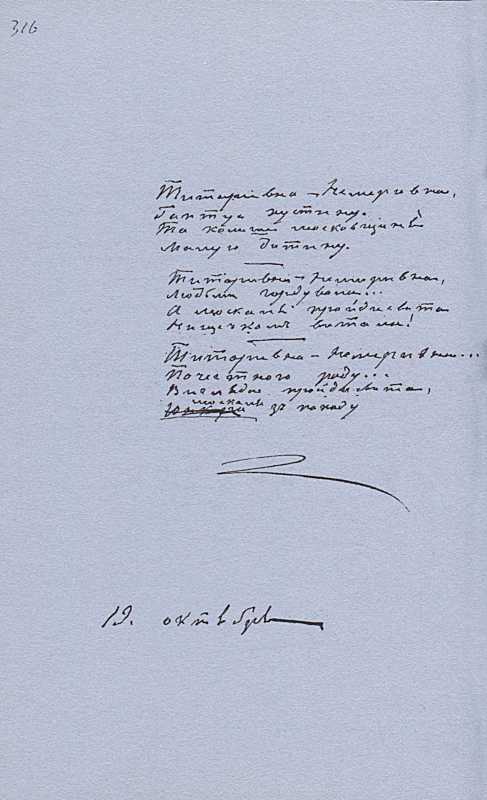 316
Титарівна-Немерівна,
Гаптує хустину.
Та колише москвищеня
Малую дитину.
Титарівна-Немерівна
Людьми гордувала...
А москаля пройдисвіта
Нищечкомъ вітала!
Титарівна-Немерівна...
Почесного роду...
Виглядає пройдисвіта,
москаля зъ походу
19. октябр